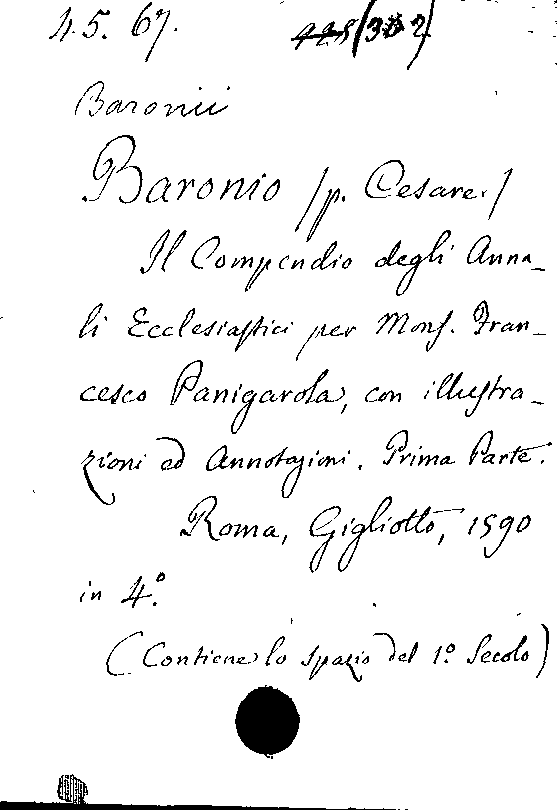 4.5. 67.
Baronii
Baronio /p. Cesare./
Il Compendio degli Anna-
li Ecclesiastici per Mons. Fran-
cesco Panigarola, con illustra-
zioni ed Annotazioni. Prima Parte.
Roma, Gigliotto, 1590
in 4.º
(Contiene lo spazio del 1.º Secolo)